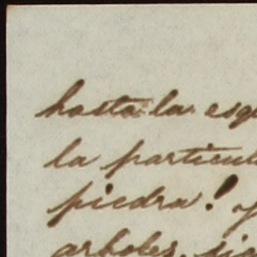 hasta la esq
la particul
piedra! y
arboles, sig